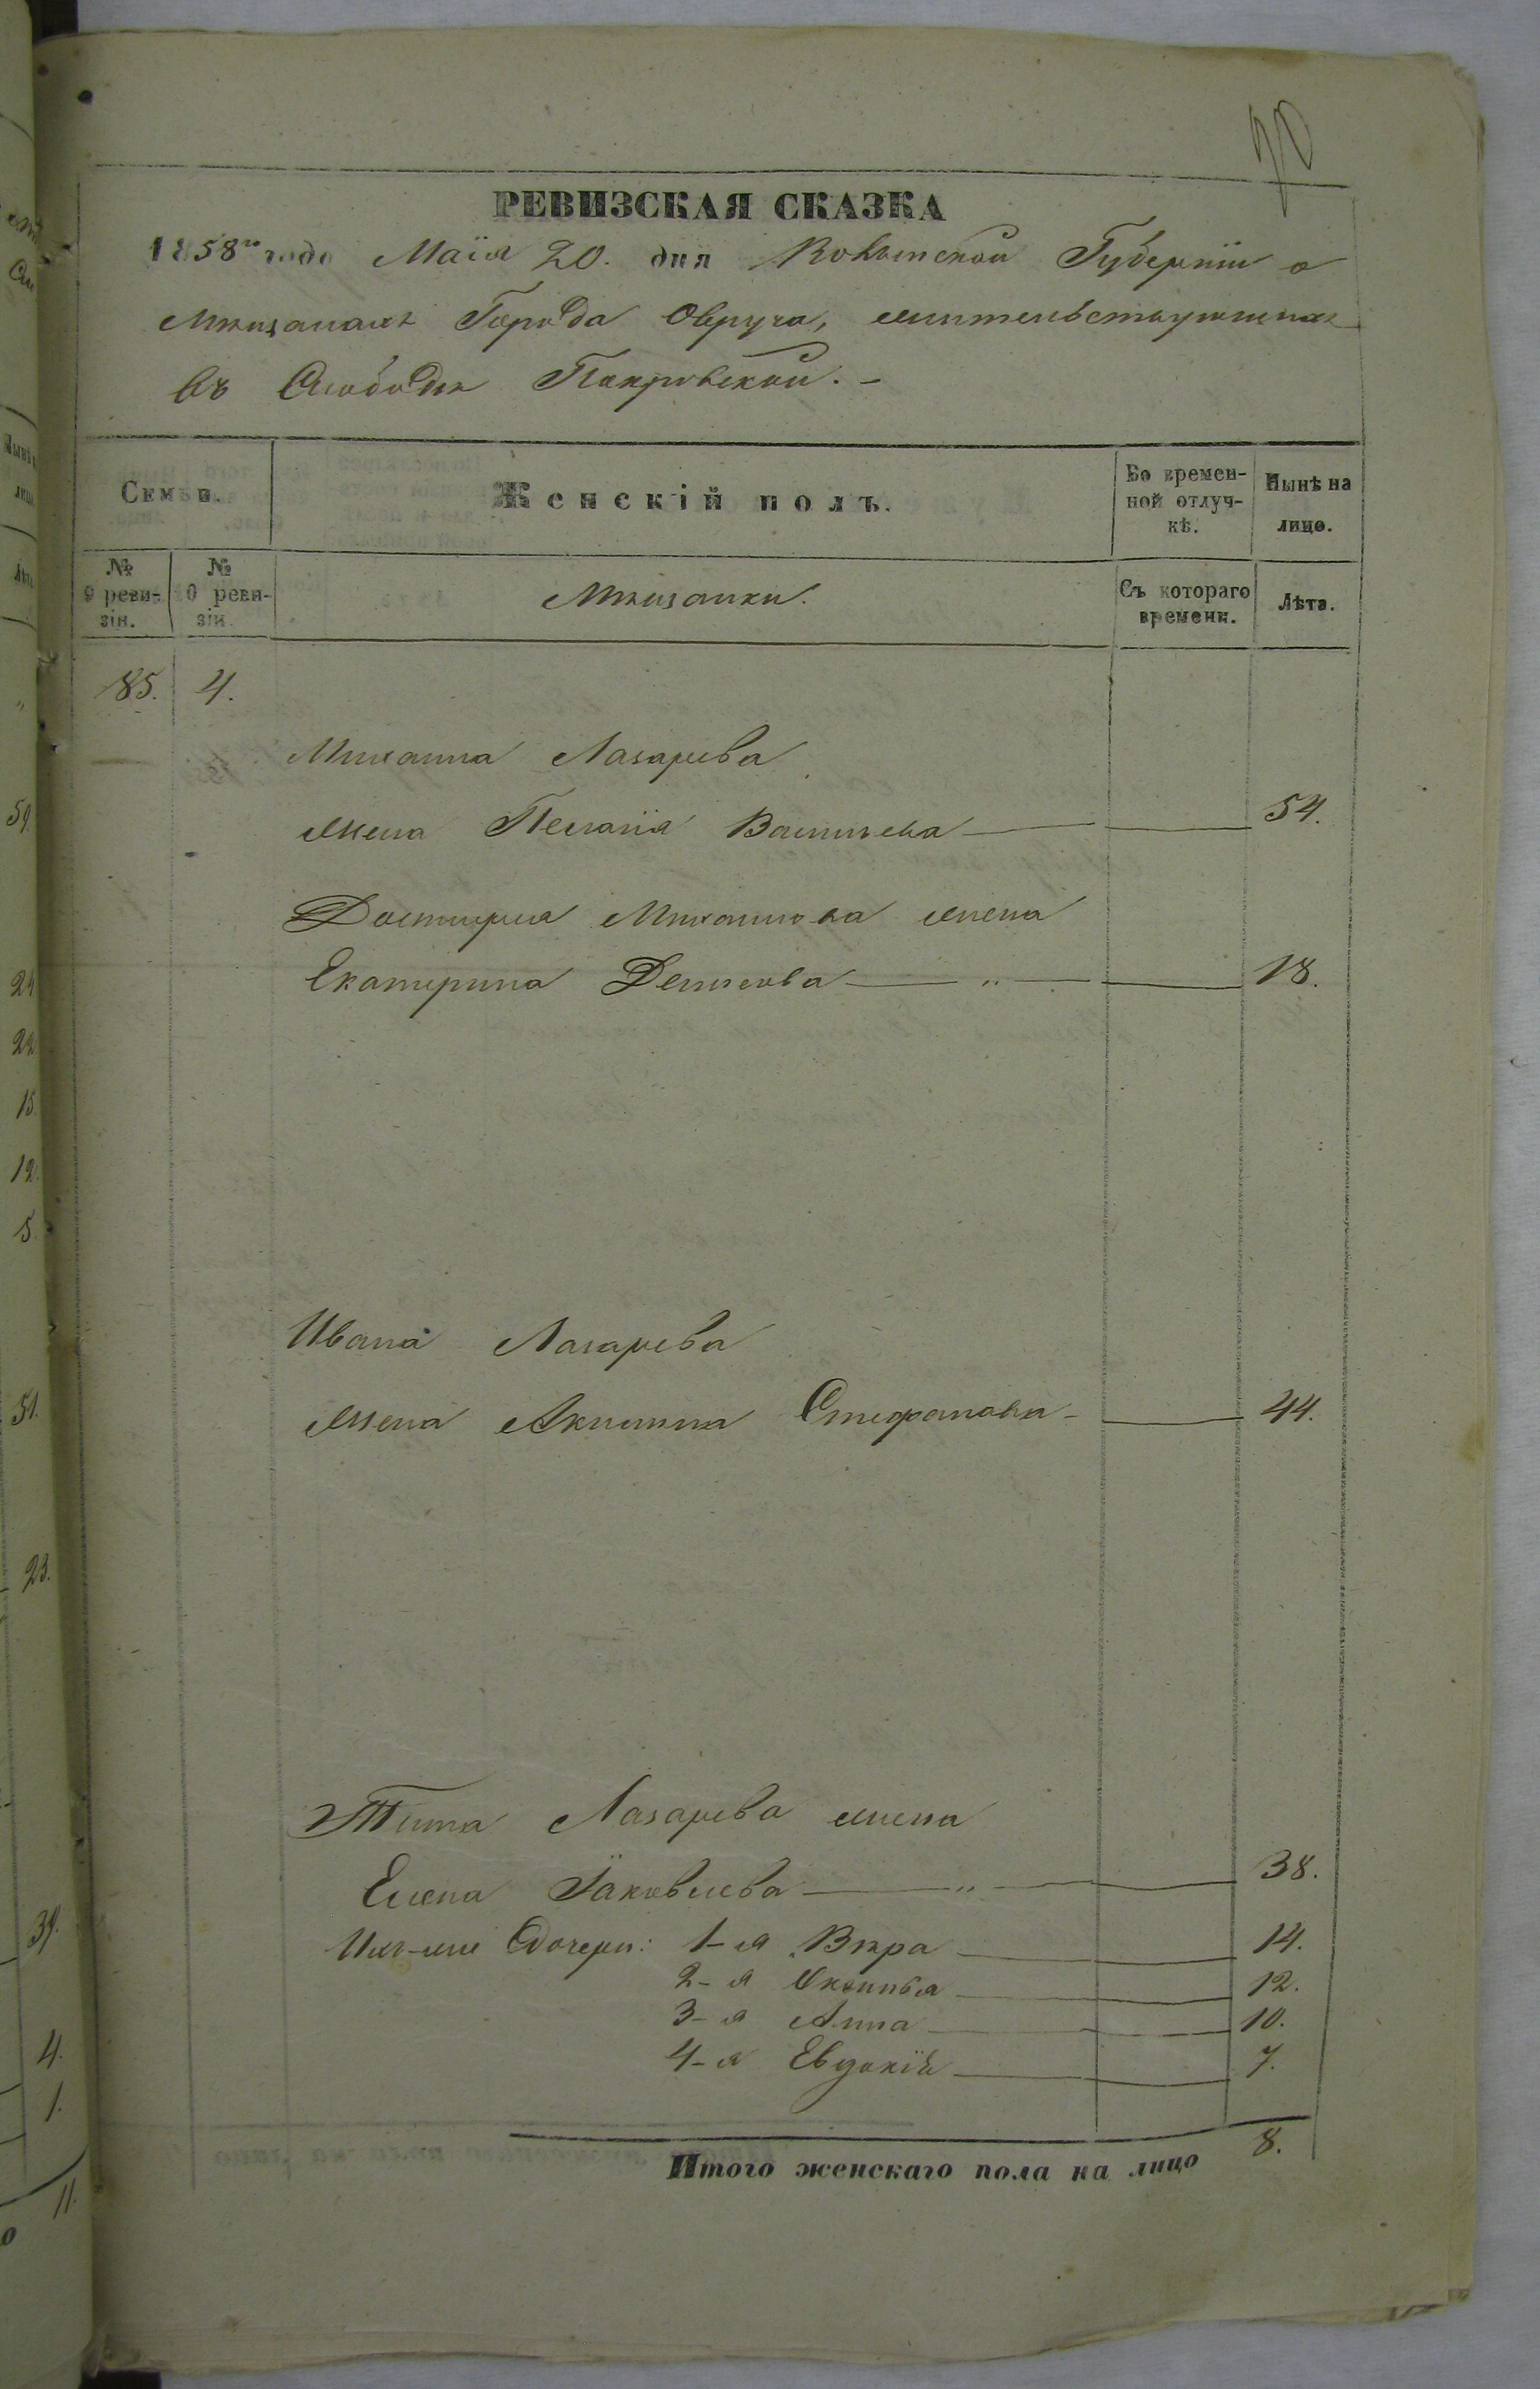 70
РЕВИЗСКАЯ СКАЗКА
1858го года Маїя 20. дня Волынской Губернїи о
Мѣщанахъ Города Овруча, жительствующихъ
въ Слободѣ Покровской. -
Семьи.
Женскій полъ.
Во времен-
ной отлуч-
кѣ.
Нынѣ на
лицо.
№
9 реви-
зіи.
№
10 реви-
зіи.
Мѣщанки.
Съ котораго
времени.
Лѣта.
85. 4.
Михаила Лазарева
жена Пелагїя Васильева 54.
Михаилова жена
Екатерина Денисова " 18.
Ивана Лазарева
жена Акилина Стефанова - 44.
Тита Лазарева жена
Елена Їаковлева " 38.
Ихъ-же Дочери: 1-я Вѣра 14.
2-я 12.
3-я Анна 10.
4-я Евдокїя 7.
Итого женскаго пола на лицо 8.
59
24
22
15
12
5
51.
23.
39.
4.
1.
11.